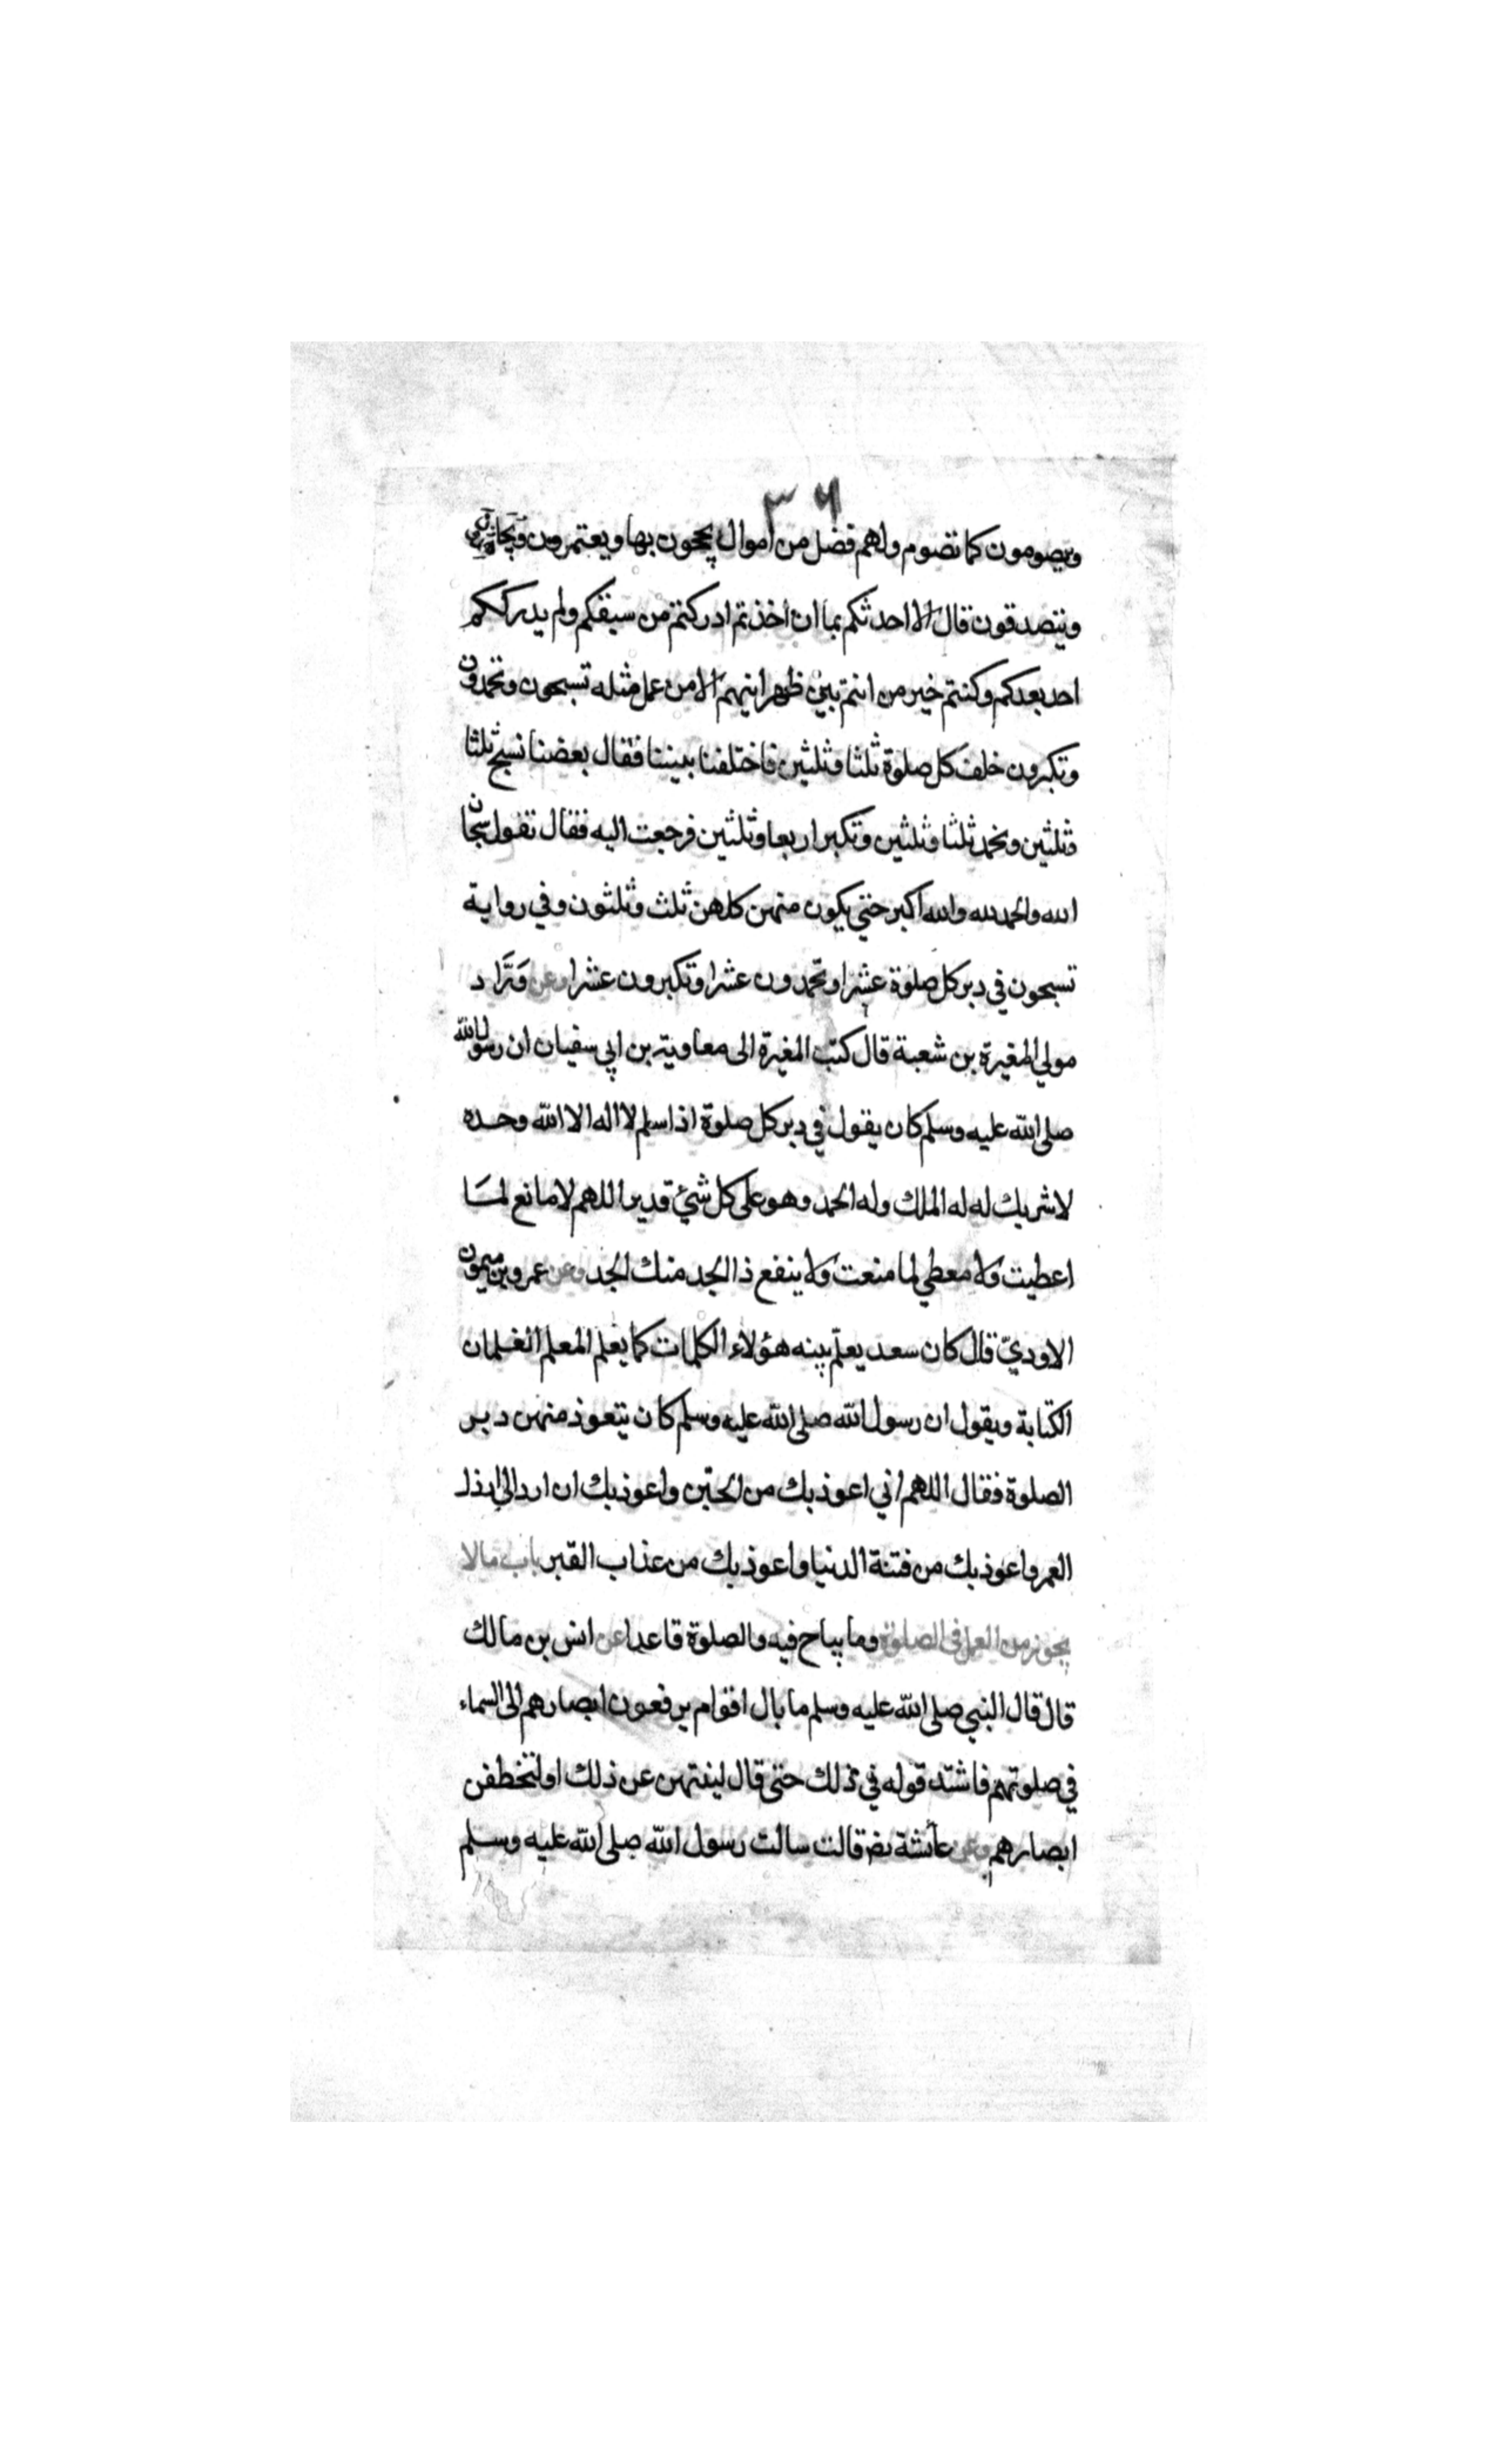 ٣٦
ويصومون كما نصوم ولهم فضل من اموال يحجون بها ويعتمرون ويجاهدون
ويتصدقون قال الا احدثكم بما ان اخذتم ادركتم من سبقكم ولم يدرككم
احد بعدكم وكنتم خير من انتم بين ظهرانيهم الا من عمل مثله تسبحون وتحمدون
وتكبرون خلف كل صلوة ثلثا وثلثين فاختلفنا بيننا فقال بعضنا نسبح ثلثا
وثلثين ونحمد ثلثا وثلثين ونكبر اربعا وثلثين فرجعت اليه فقال تقول سبحان
الله والحمد لله والله اكبر حتي يكون منهن كلهن ثلث وثلثون وفي رواية
تسبحون في دبر كل صلوة عشرا وتحمدون عشرا وتكبرون عشرا وعن وَرَّاد
مولي المغيرة بن شعبة قال كتب المغيرة الى معاوية بن ابي سفيان ان رسول الله
صلى الله عليه وسلم كان يقول في دبر كل صلوة اذا سلم لا اله الا الله وحده
لا شريك له له الملك وله الحمد وهو على كل شئ قدير اللهم لا مانع لما
اعطيت ولا معطي لما منعت ولا ينفع ذا الجد منك الجد وعن عمرو بن ميمون
الاوديّ قال كان سعد يعلّم بنيه هؤلاء الكلمات كما يعلم المعلم الغلمان
الكتابة ويقول ان رسول الله صلى الله عليه وسلم كان يتعوذ منهن دبر
الصلوة فقال اللهم اني اعوذ بك من الجبن واعوذ بك ان ارد الي ارذل
العمر واعوذ بك من فتنة الدنيا واعوذ بك من عذاب القبر باب ما لا
يجوز من العمل في الصلوة وما يباح فيه والصلوة قاعدا عن انس بن مالك
قال قال النبي صلى الله عليه وسلم ما بال اقوام يرفعون ابصارهم الى السماء
في صلوتهم فاشتد قوله في ذلك حتى قال لينتهن عن ذلك او لتخطفن
ابصارهم وعن عائشة رض قالت سالت رسول الله صلى الله عليه وسلم